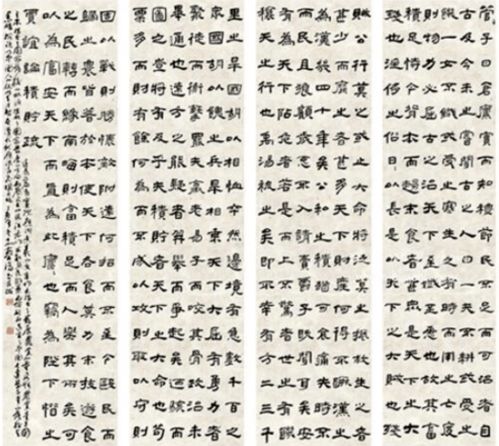 管子曰倉廩實而知禮節民不足而可治
者自古及今未之嘗聞古之人曰一夫不耕或受
之飢一女不織或受之寒生之有時而用之亡度
則物力必屈古之治天下至孅至悉也故其畜
積足恃今背本而趨末食者甚眾是天下之大
殘也淫侈之俗日日以長是天下之大賊也殘
賊公行莫之或止大命將泛莫之振救生之者
甚少而靡之者甚多天下財產何得不蹶漢之
為漢幾四十年矣公私之積猶可哀痛失時不雨民
且狼顧歲惡不入請賣爵子既聞耳矣安
有為天下阽危者若是而上不驚者世之有飢穰
天之行也禹湯被之矣即不幸有方二三千
里之旱國胡以相恤卒然邊境有急數千百萬之
眾國胡以餽之兵旱相乘天下大屈有勇力者聚
徒而衡擊罷夫羸老易子而齩其骨政治未
畢通也遠方之能疑者並舉而爭起矣乃駭而
圖之豈將有及乎夫積貯者天下之大命也苟粟
多而財有餘何為而不成以攻則取以守則
固以戰則勝懷敵附遠何招而不至今毆民而
歸之農皆著於本使天下各食其力末技游食
之民轉而緣南畝則畜積足而人樂其所矣可
以為富安天下而直為此廩廩也竊為陛下惜之
賈誼論積貯疏